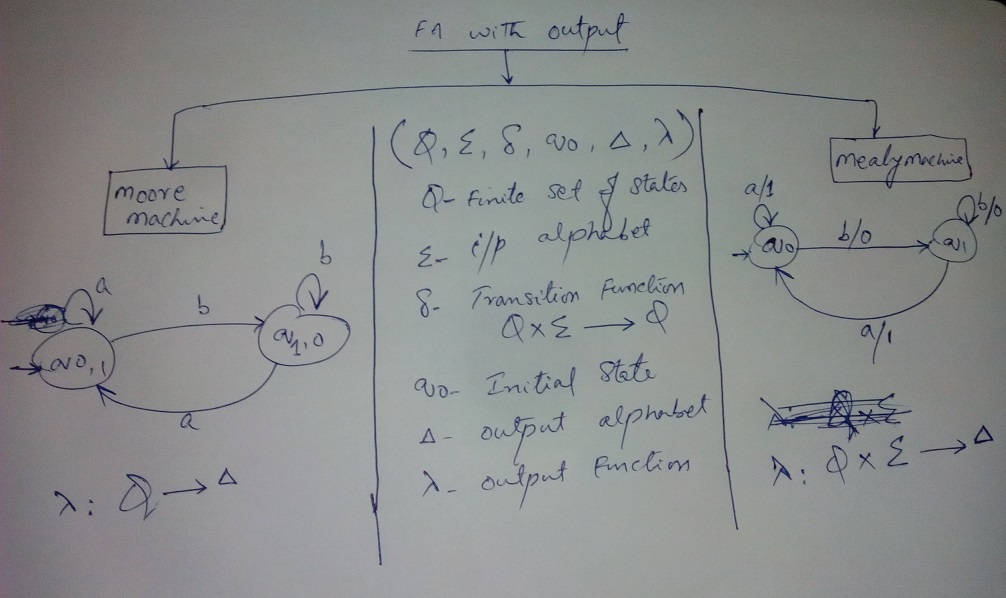 FA with output
moore
machine
a
b
b
q0,1
q1,0
a
λ: Q → Δ
(Q, Σ, δ, q0, Δ, λ)
Q- Finite set of states
Σ- i/p alphabet
δ- Transition Function
Q×Σ → Q
q0- Initial State
Δ- output alphabet
λ- output Function
mealy machine
a/1
b/0
b/0
q0
q1
a/1
λ: Q × Σ → Δ